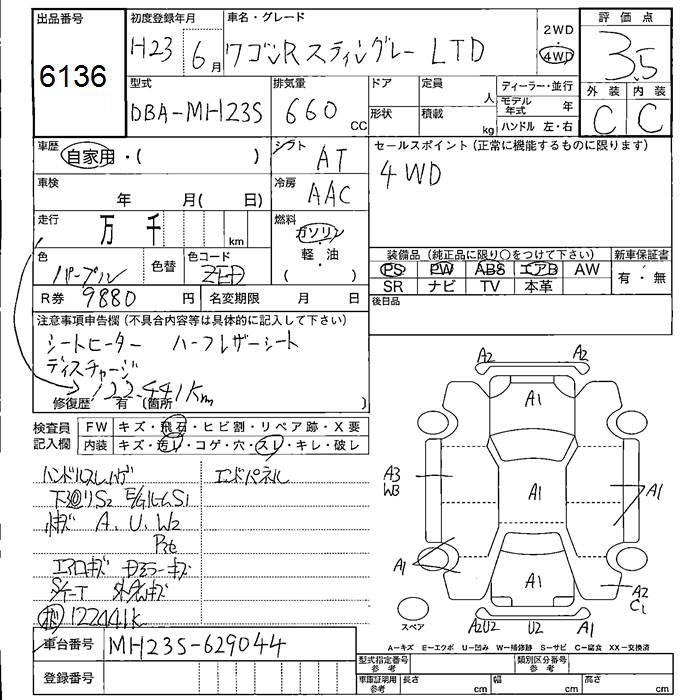 出品番号 初度登録年月 車名・グレード 2WD 4WD 評価点
6136 H23 6月 ワゴンR スティングレー LTD 3.5
型式 排気量 ドア 定員 人 ディーラー・並行 外装 内装
DBA-MH23S 660 CC 形状 積載 kg モデル年式 年 C C
ハンドル 左・右
車歴 自家用・( ) シフト AT セールスポイント (正常に機能するものに限ります)
車検 年 月( 日) 冷房 AAC 4WD
走行 万 千 km 燃料 ガソリン
軽・油
( )
色 パープル 色替 色コード ZED
装備品 (純正品に限り○をつけて下さい) 新車保証書
PS PW ABS エアB AW 有・無
SR ナビ TV 本革
R券 9880 円 名変期限 月 日 後日品
注意事項申告欄 (不具合内容等は具体的に記入して下さい)
シートヒーター ハーフレザーシート
ディスチャージ
122.441Km
修復歴 有 (箇所 )
検査員記入欄 FW キズ・飛石・ヒビ割・リペア跡・X要
内装 キズ・汚レ・コゲ・穴・スレ・キレ・破レ
ハンドルスレハゲ エンドパネル
下廻りS2 E/GルームS1
A、U、W2
エアロキズ ドアミラーキズ
122441K
車台番号 MH23S-629044
登録番号
A2 A2
A1
A3
W3 A1 A1
A1
A1 A2
C1
スペア A2U2 U2 A1
A-キズ E-エクボ U-凹み W-補修跡 S-サビ C-腐食 XX-交換済
型式指定番号 参考 類別区分番号 参考
車庫証明用 参考 長さ cm 幅 cm 高さ cm